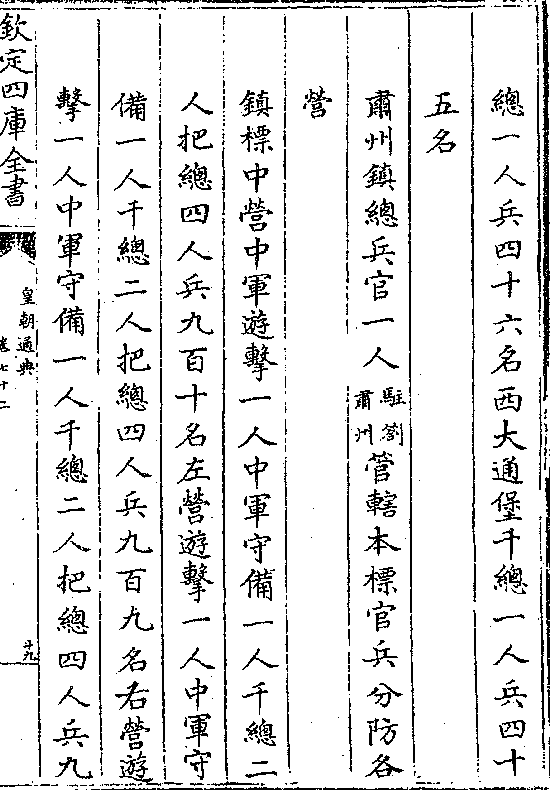 總一人兵四十六名西大通堡千總一人兵四十
五名
肅州鎮總兵官一人駐劄肅州管轄本標官兵分防各
營
鎮標中營中軍遊擊一人中軍守備一人千總二
人把總四人兵九百十名左營遊擊一人中軍守
備一人千總二人把總四人兵九百九名右營遊
擊一人中軍守備一人千總二人把總四人兵九
欽定四庫全書
皇朝通典
卷七十二
廿九